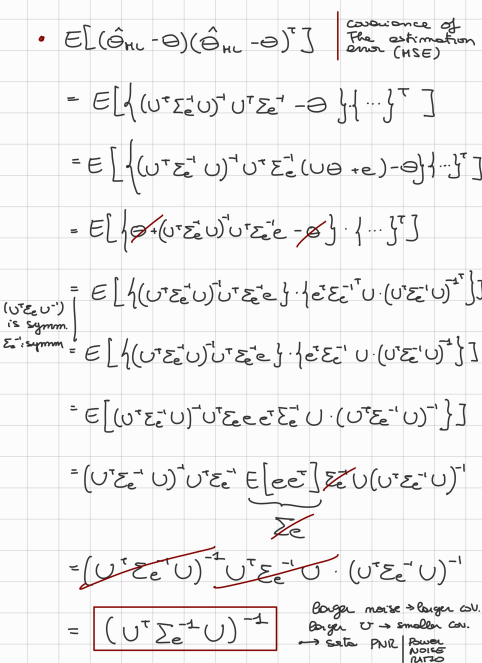 • E[(θ̂_ML - θ)(θ̂_ML - θ)ᵀ] | covariance of the estimation error (MSE)
= E[{(UᵀΣₑ⁻¹U)⁻¹UᵀΣₑ⁻¹ - θ}{⋯}ᵀ]
= E[{(UᵀΣₑ⁻¹U)⁻¹UᵀΣₑ⁻¹(Uθ + e) - θ}{⋯}ᵀ]
= E[{θ + (UᵀΣₑ⁻¹U)⁻¹UᵀΣₑ⁻¹e - θ} · {⋯}ᵀ]
= E[{(UᵀΣₑ⁻¹U)⁻¹UᵀΣₑe} · {eᵀΣₑ⁻¹ᵀU · (UᵀΣₑ⁻¹U)⁻¹ᵀ}]
(UᵀΣₑU⁻¹)
is symm.
Σₑ⁻¹: symm
= E[{(UᵀΣₑ⁻¹U)⁻¹UᵀΣₑe} · {eᵀΣₑ⁻¹ U · (UᵀΣₑ⁻¹U)⁻¹}]
= E[(UᵀΣₑ⁻¹U)⁻¹UᵀΣₑeeᵀΣₑ⁻¹U · (UᵀΣₑ⁻¹U)⁻¹}]
= (UᵀΣₑ⁻¹U)⁻¹UᵀΣₑ⁻¹ E[eeᵀ] Σₑ⁻¹U(UᵀΣₑ⁻¹U)⁻¹
Σₑ
= (UᵀΣₑ⁻¹U)⁻¹UᵀΣₑ⁻¹U · (UᵀΣₑ⁻¹U)⁻¹
= (UᵀΣₑ⁻¹U)⁻¹
larger noise → larger cov.
larger U → smaller cov.
↦ sets PNR | POWER
NOISE
RATIO